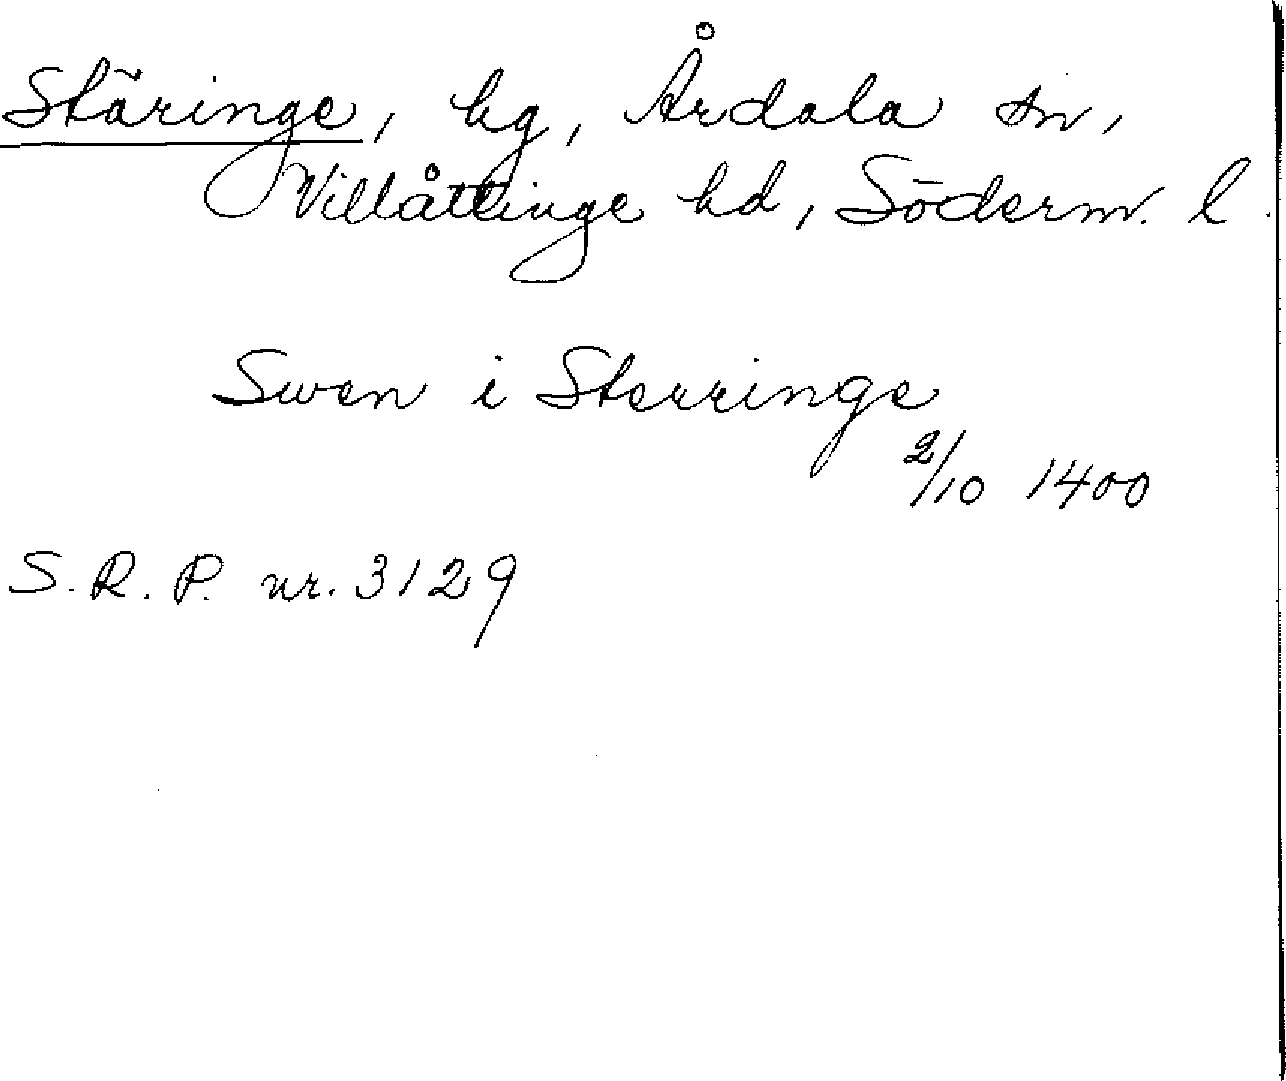 Stäringe, hg, Årdala sn,
Villåttinge hd, Söderm. l.
Swen i Sterringe
2/10 1400
S.R.P. nr. 3129